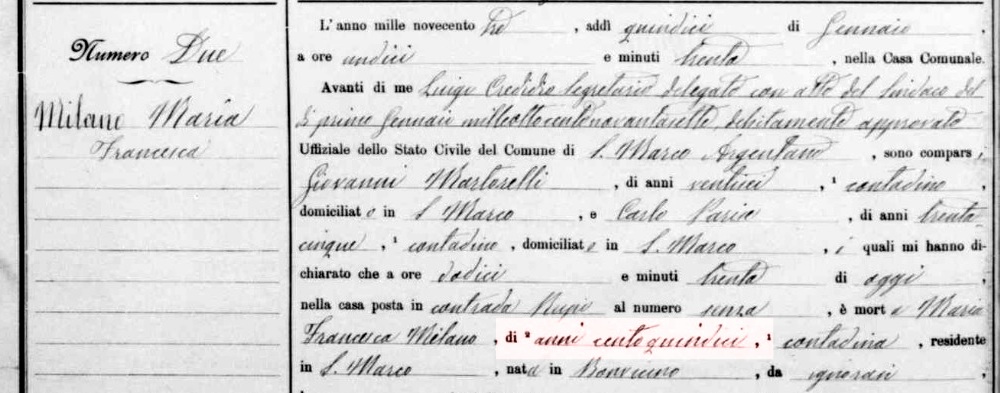 Numero Due
Milano Maria
Francesca
L'anno mille novecento tre, addì quindici di Gennaio,
a ore undici e minuti trenta, nella Casa Comunale.
Avanti di me Luigi Credidio Segretario delegato con atto del Sindaco del
primo Gennaio milleottocentonovantasette debitamente approvato
Uffiziale dello Stato Civile del Comune di S. Marco Argentano, sono compars i
Giovanni Martorelli, di anni ventisei, ¹ contadino,
domiciliato in S. Marco, e Carlo Paria, di anni trenta
cinque, ¹ contadino, domiciliato in S. Marco, i quali mi hanno di-
chiarato che a ore dodici e minuti trenta di oggi
nella casa posta in contrada al numero senza, è morta Maria
Francesca Milano, di ² anni centoquindici, ¹ contadina, residente
in S. Marco, nata in Bonvicino, da ignorasi,